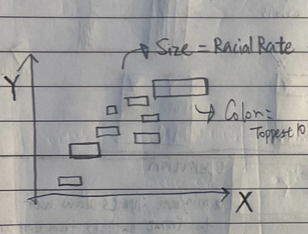 Size = Racial Rate
Y
Color =
Toppest 10
X